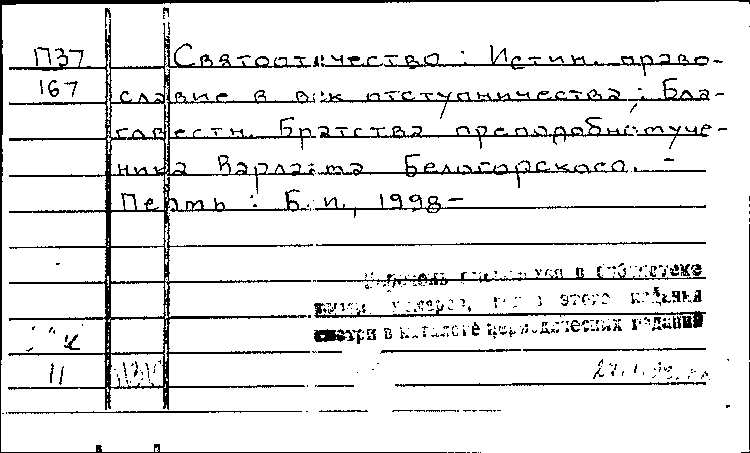 П37 Святоотечество : Истин. право-
167 славие в век отступничества : Бла-
говестн. Братства преподобномуче-
ника Варлаама Белогорского. –
Пермь : Б. и., 1998–
Перечень имеющихся в библиотеке
номеров, год этого издания
смотри в каталоге периодических изданий
11